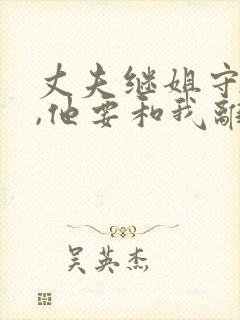 丈夫继姐守
,他要和我離
吴英杰